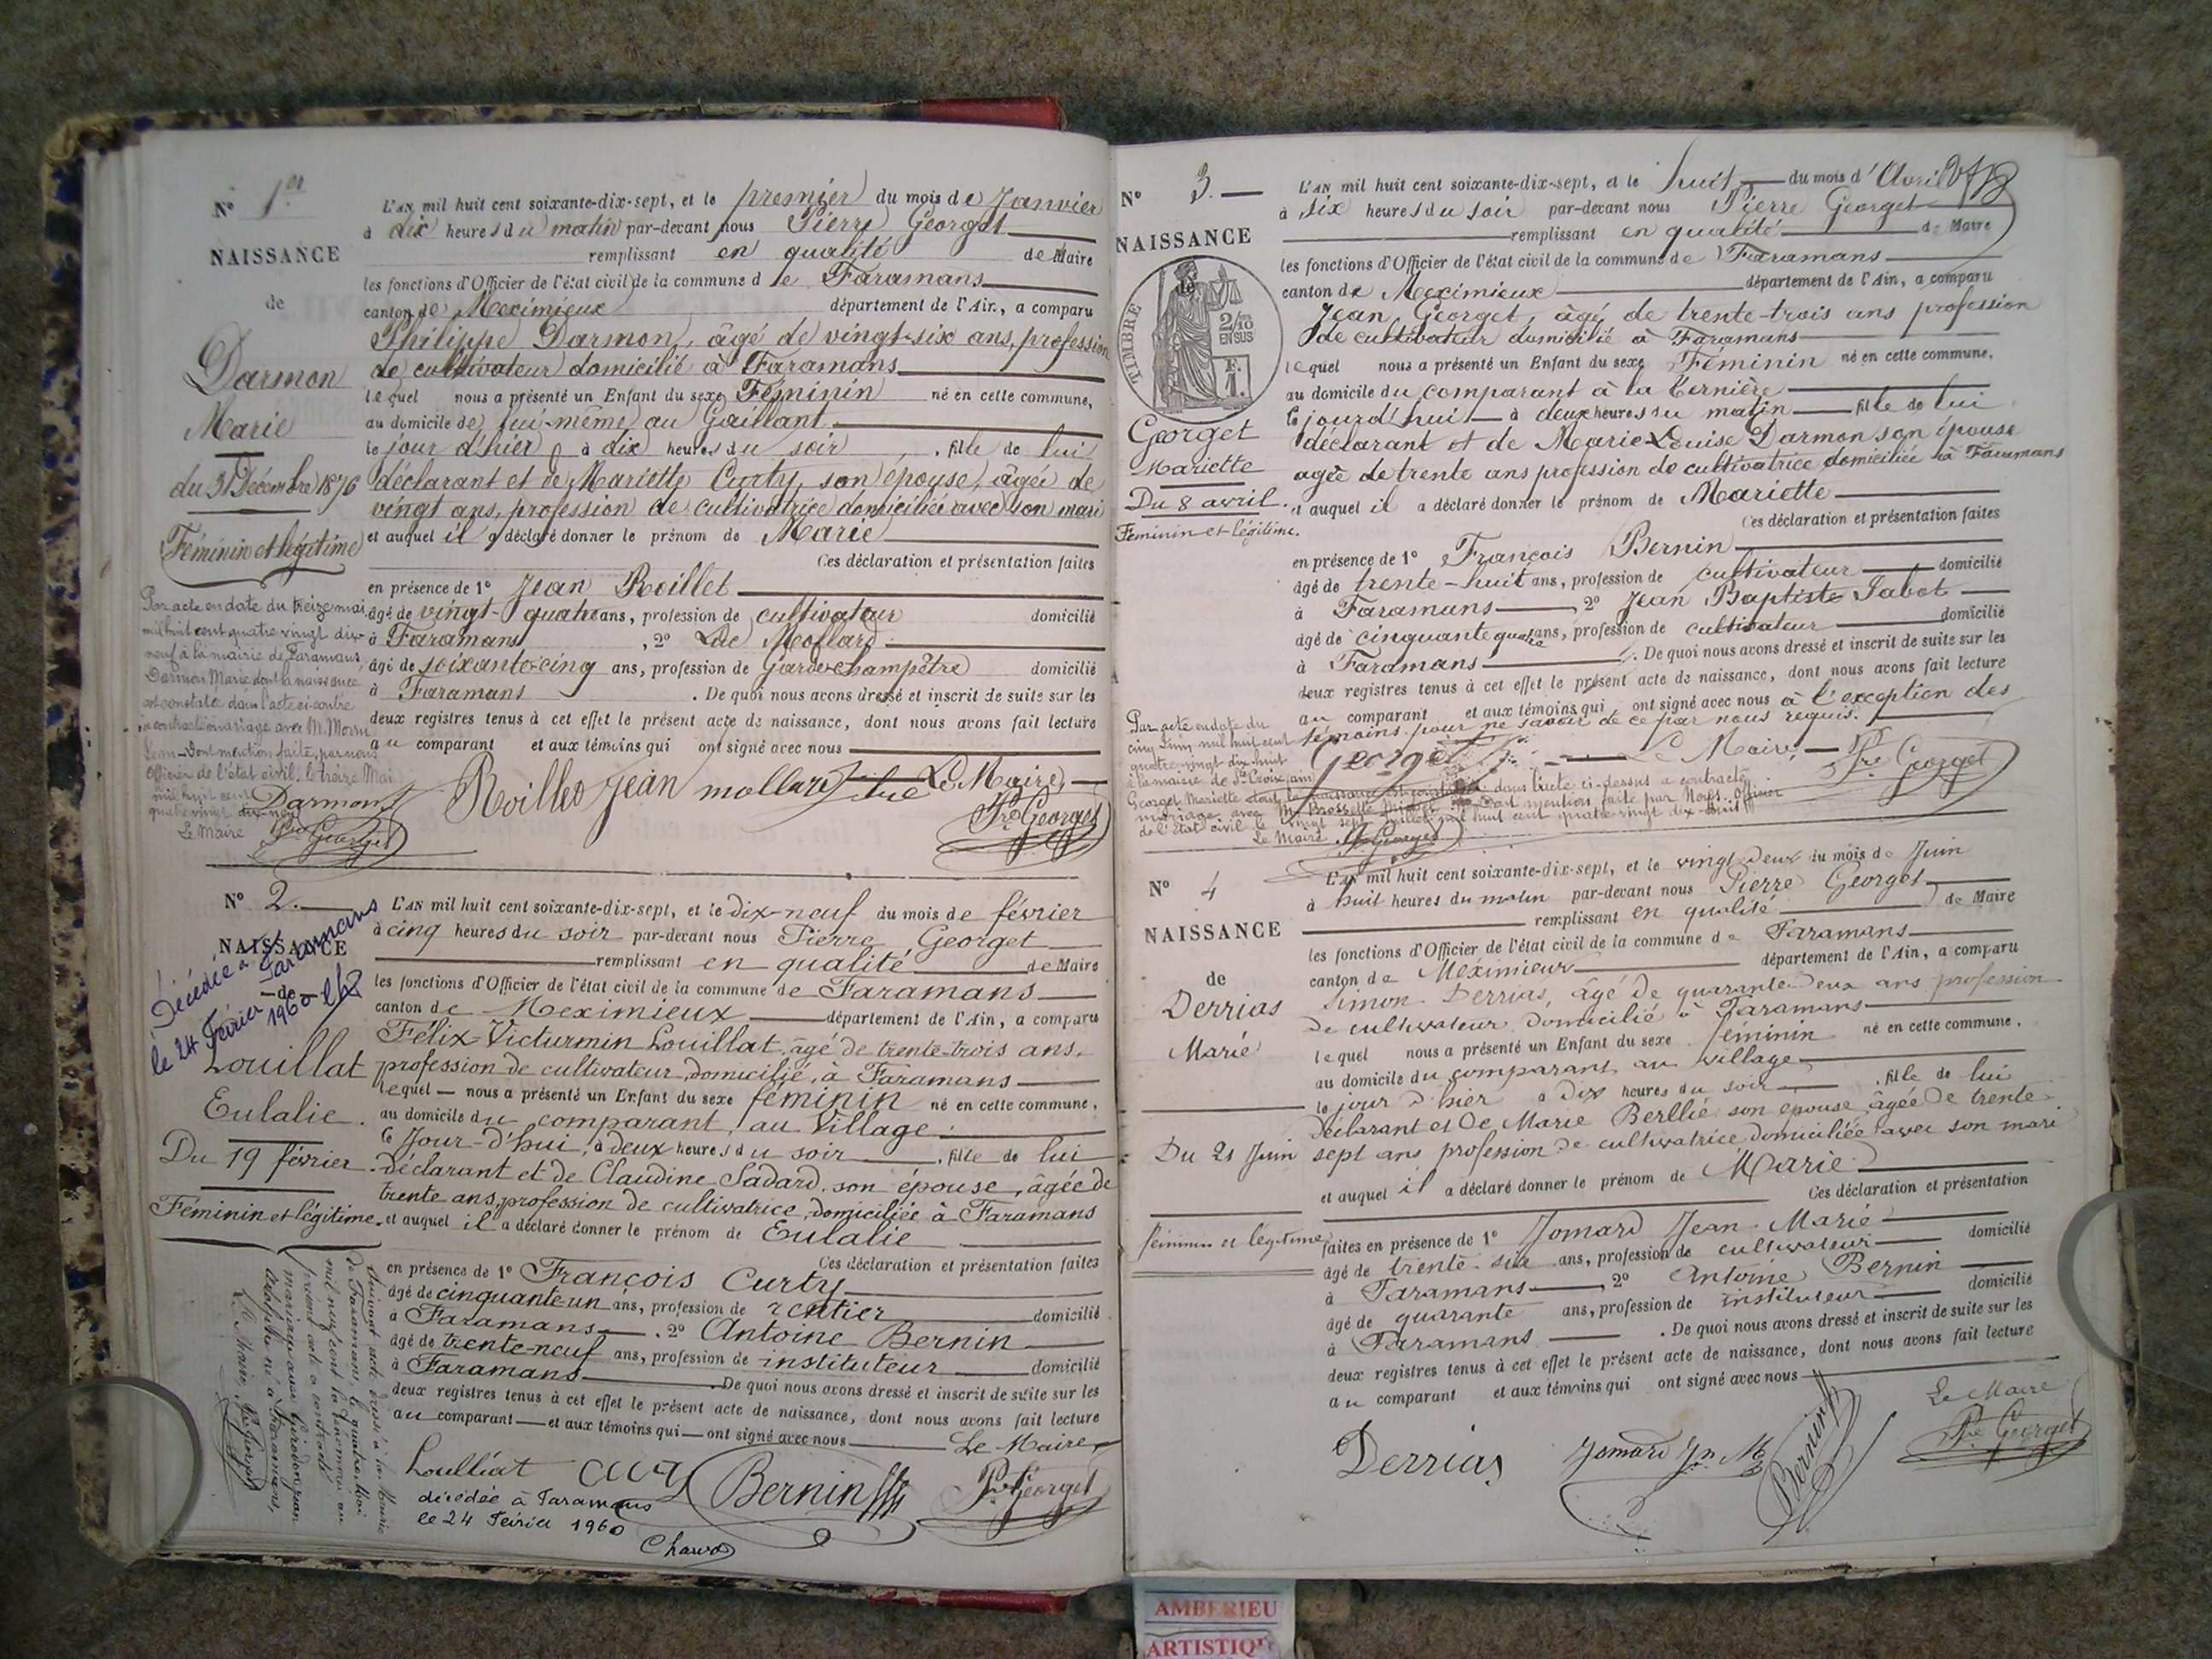 N° 1er
NAISSANCE
de
Darmon
Marie
du 31 Décembre 1876
Féminin et légitime
Par acte en date du treize mai
mil huit cent quatre vingt dix
neuf à la mairie de Faramans
Darmon Marie dont la naissance
est constatée dans l'acte ci-contre
a contracté mariage avec M. Morin
Jean - Dont mention faite par nous
Officier de l'état civil, le treize Mai
mil huit cent
quatre vingt dix-neuf
Le Maire
Pre Georget
L'AN mil huit cent soixante-dix-sept, et le premier du mois de Janvier
à dix heures du matin par-devant nous Pierre Georget
remplissant en qualité de Maire
les fonctions d'Officier de l'état civil de la commune de Faramans
canton de Meximieux département de l'Ain, a comparu
Philippe Darmon, âgé de vingt-six ans, profession
de cultivateur domicilié à Faramans
lequel nous a présenté un Enfant du sexe Féminin né en cette commune,
au domicile de lui-même au Gaillant
le jour d'hier à dix heures du soir, fille de lui
déclarant et de Mariette Curty, son épouse, âgée de
vingt ans, profession de cultivatrice domiciliée avec son mari
et auquel il a déclaré donner le prénom de Marie
Ces déclaration et présentation faites
en présence de 1° Jean Roillet
âgé de vingt-quatre ans, profession de cultivateur domicilié
à Faramans, 2° Luc Mollard
âgé de soixante-cinq ans, profession de Garde-champêtre domicilié
à Faramans. De quoi nous avons dressé et inscrit de suite sur les
deux registres tenus à cet effet le présent acte de naissance, dont nous avons fait lecture
au comparant et aux témoins qui ont signé avec nous
Darmon Roillet Jean mollard luc Le Maire,
Pre Georget
N° 2.
NAISSANCE
de
Décédée à Faramans
le 24 Février 1960
Louillat
Eulalie.
Du 19 février.
Féminin et légitime.
Suivant acte dressé à la Mairie
de Faramans le quatre Mai
mil neuf cent la dénommée au
présent acte a contracté
mariage avec
né à Faramans,
Le Maire, Pre Georget
L'AN mil huit cent soixante-dix-sept, et le dix-neuf du mois de février
à cinq heures du soir par-devant nous Pierre Georget
remplissant en qualité de Maire
les fonctions d'Officier de l'état civil de la commune de Faramans
canton de Meximieux département de l'Ain, a comparu
Félix-Victurmin Louillat, âgé de trente-trois ans,
profession de cultivateur, domicilié, à Faramans
lequel nous a présenté un Enfant du sexe féminin né en cette commune,
au domicile du comparant, au Village
le Jour-d'hui, à deux heures du soir, fille de lui
déclarant et de Claudine Sadard, son épouse, âgée de
trente ans, profession de cultivatrice, domiciliée à Faramans
et auquel il a déclaré donner le prénom de Eulalie
Ces déclaration et présentation faites
en présence de 1° François Curty
âgé de cinquante-un ans, profession de rentier domicilié
à Faramans. 2° Antoine Bernin
âgé de trente-neuf ans, profession de instituteur domicilié
à Faramans. De quoi nous avons dressé et inscrit de suite sur les
deux registres tenus à cet effet le présent acte de naissance, dont nous avons fait lecture
au comparant et aux témoins qui ont signé avec nous Le Maire,
Louilliat Bernin Pre Georget
décédée à Faramans
le 24 Février 1960
N° 3.
NAISSANCE
TIMBRE
2/10
EN SUS
F.
1.
Georget
Mariette
Du 8 avril.
Féminin et légitime.
L'AN mil huit cent soixante-dix-sept, et le huit du mois d'Avril
à six heures du soir par-devant nous Pierre Georget
remplissant en qualité de Maire
les fonctions d'Officier de l'état civil de la commune de Faramans
canton de Meximieux département de l'Ain, a comparu
Jean Georget, âgé de trente-trois ans profession
de cultivateur domicilié à Faramans
lequel nous a présenté un Enfant du sexe Féminin né en cette commune,
au domicile du comparant à la
le jourd'hui à deux heures du matin fille de lui
déclarant et de Marie-Louise Darmon son épouse
agée de trente ans profession de cultivatrice domiciliée à Faramans
et auquel il a déclaré donner le prénom de Mariette
Ces déclaration et présentation faites
en présence de 1° François Bernin
âgé de trente-huit ans, profession de cultivateur domicilié
à Faramans, 2° Jean Baptiste Jabot
âgé de cinquante quatre ans, profession de cultivateur domicilié
à Faramans. De quoi nous avons dressé et inscrit de suite sur les
deux registres tenus à cet effet le présent acte de naissance, dont nous avons fait lecture
au comparant et aux témoins qui ont signé avec nous à l'exception des
témoins pour ne savoir de ce par nous requis.
Georget Le Maire, Pre Georget
Par acte en date du
cinq Juin mil huit cent
quatre vingt dix-huit
à la mairie de Ste Croix (ain)
Georget Mariette dont la naissance est constatée dans l'acte ci-dessus a contracté
mariage avec M. Brossette dont mention faite par Nous, Officier
de l'Etat civil le vingt sept Juillet mil huit cent quatre vingt dix-huit
Le Maire Pre Georget
N° 4
NAISSANCE
de
Derrias
Marie
Du 21 Juin
féminin et légitime
L'AN mil huit cent soixante-dix-sept, et le vingt deux du mois de Juin
à huit heures du matin par-devant nous Pierre Georget
remplissant en qualité de Maire
les fonctions d'Officier de l'état civil de la commune de Faramans
canton de Meximieux département de l'Ain, a comparu
Simon Derrias, âgé de quarante deux ans profession
de cultivateur domicilié à Faramans
lequel nous a présenté un Enfant du sexe féminin né en cette commune,
au domicile du comparant au village
le jour d'hier à dix heures du soir, fille de lui
déclarant et de Marie Berllié son épouse âgée de trente
sept ans profession de cultivatrice domiciliée avec son mari
et auquel il a déclaré donner le prénom de Marie
Ces déclaration et présentation
faites en présence de 1° Jomard Jean-Marie domicilié
âgé de trente-six ans, profession de cultivateur
à Faramans 2° Antoine Bernin
âgé de quarante ans, profession de instituteur domicilié
à Faramans. De quoi nous avons dressé et inscrit de suite sur les
deux registres tenus à cet effet le présent acte de naissance, dont nous avons fait lecture
au comparant et aux témoins qui ont signé avec nous
Le Maire
Derrias Jomard Jn M Bernin Pre Georget
AMBERIEU
ARTISTIQ